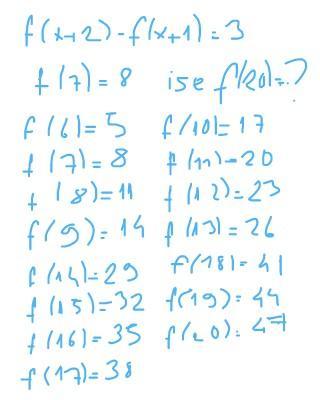 f(x+2)-f(x+1)=3
f(7)=8 ise f(20)=?
f(6)=5 f(10)=17
f(7)=8 f(11)=20
f(8)=11 f(12)=23
f(9)=14 f(13)=26
f(14)=29 f(18)=41
f(15)=32 f(19)=44
f(16)=35 f(20)=47
f(17)=38